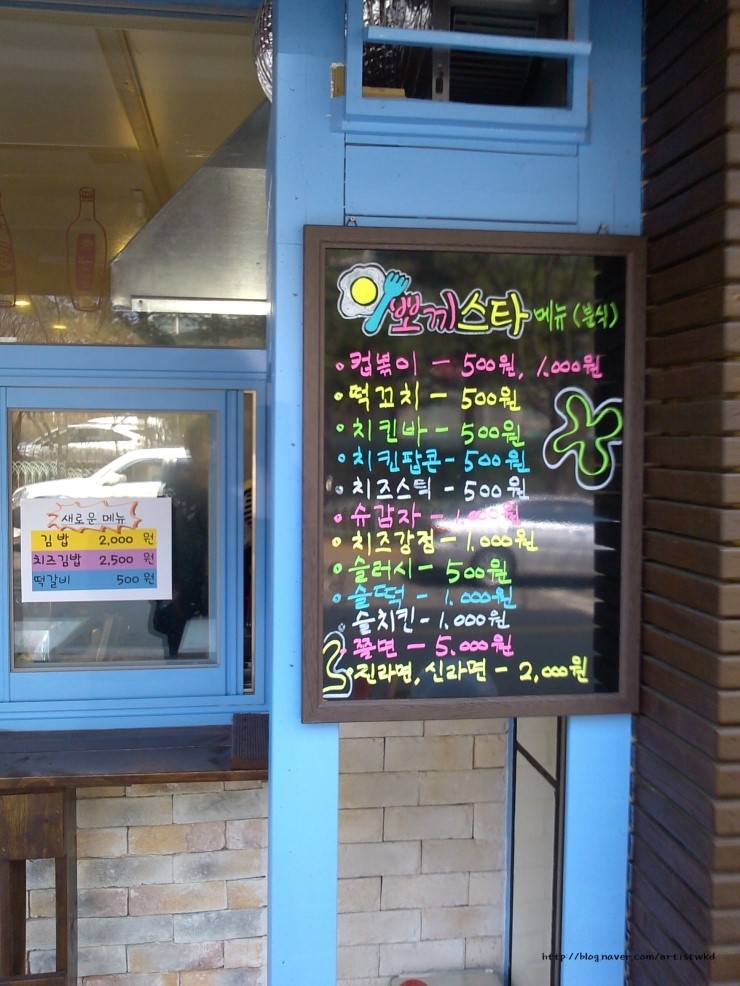 뽀끼스타 메뉴 (분식)
• 컵볶이 - 500원, 1,000원
• 떡꼬치 - 500원
• 치킨바 - 500원
• 치킨팝콘 - 500원
• 치즈스틱 - 500원
• 슈감자 - 1,000원
• 치즈강정 - 1,000원
• 슬러시 - 500원
• 슬떡 - 1,000원
• 슬치킨 - 1,000원
• 쫄면 - 5,000원
• 진라면, 신라면 - 2,000원
새로운 메뉴
김밥 2,000 원
치즈김밥 2,500 원
떡갈비 500 원
http://blog.naver.com/artistwkd